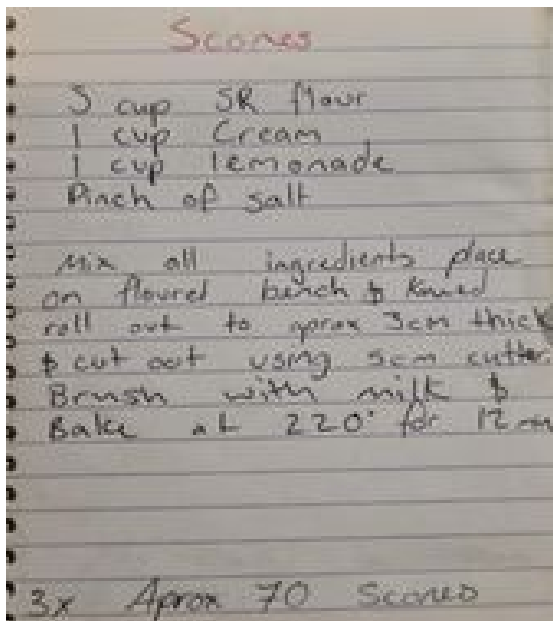 Scones
3 cup SR flour
1 cup Cream
1 cup lemonade
Pinch of salt
Mix all ingredients place
on floured bench & Knned
roll out to aprox 3cm thick
& cut out using 5cm cutter.
Brush with milk &
Bake at 220° for 12 min
3x Aprox 70 Scones